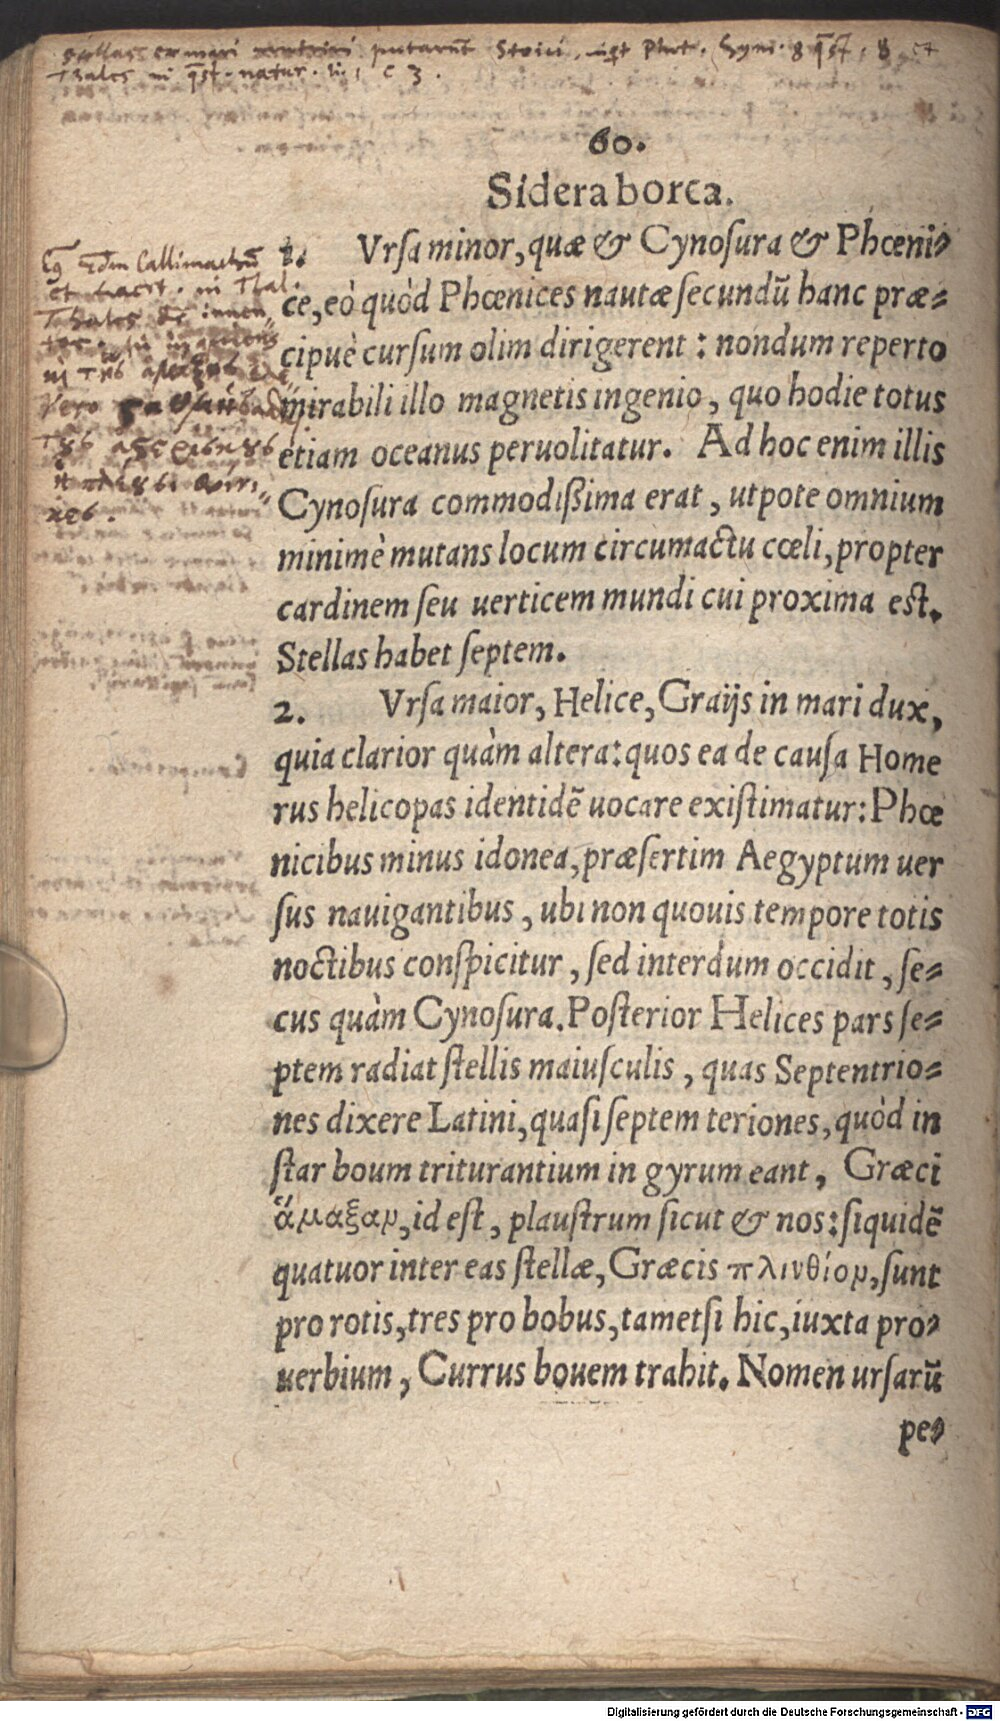 stellas ex mari nutriri putarunt Stoici, inqt Plut. Symp. 8 qst. 8 et
Thales in qst. natur. li. 1 c 3.
60.
Sidera borea.
Cũ Callimachũ
et Laert. in Thal.
Thales
1. Vrſa minor, quæ & Cynoſura & Phœni⸗
ce, eò quòd Phœnices nautæ ſecundũ hanc præ⸗
cipuè curſum olim dirigerent : nondum reperto
mirabili illo magnetis ingenio, quo hodie totus
etiam oceanus peruolitatur. Ad hoc enim illis
Cynoſura commodißima erat, utpote omnium
minimè mutans locum circumactu cœli, propter
cardinem ſeu uerticem mundi cui proxima est.
Stellas habet ſeptem.
2. Vrſa maior, Helice, Graijs in mari dux,
quia clarior quàm altera: quos ea de cauſa Home
rus helicopas identidẽ uocare exiſtimatur: Phœ
nicibus minus idonea, præſertim Aegyptum uer
ſus nauigantibus, ubi non quouis tempore totis
noctibus conſpicitur, ſed interdum occidit, ſe⸗
cus quàm Cynoſura. Poſterior Helices pars ſe⸗
ptem radiat ſtellis maiuſculis, quas Septentrio⸗
nes dixere Latini, quaſi ſeptem teriones, quòd in
ſtar boum triturantium in gyrum eant, Græci
ἅμαξαν, id eſt, plauſtrum ſicut & nos: ſiquidẽ
quatuor inter eas ſtellæ, Græcis πλινθίον, ſunt
pro rotis, tres pro bobus, tametſi hic, iuxta pro⸗
uerbium, Currus bouem trahit. Nomen urſarũ
pe⸗
Digitalisierung gefördert durch die Deutsche Forschungsgemeinschaft - DFG